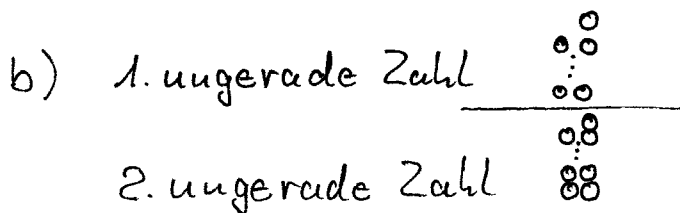 b) 1. ungerade Zahl
2. ungerade Zahl